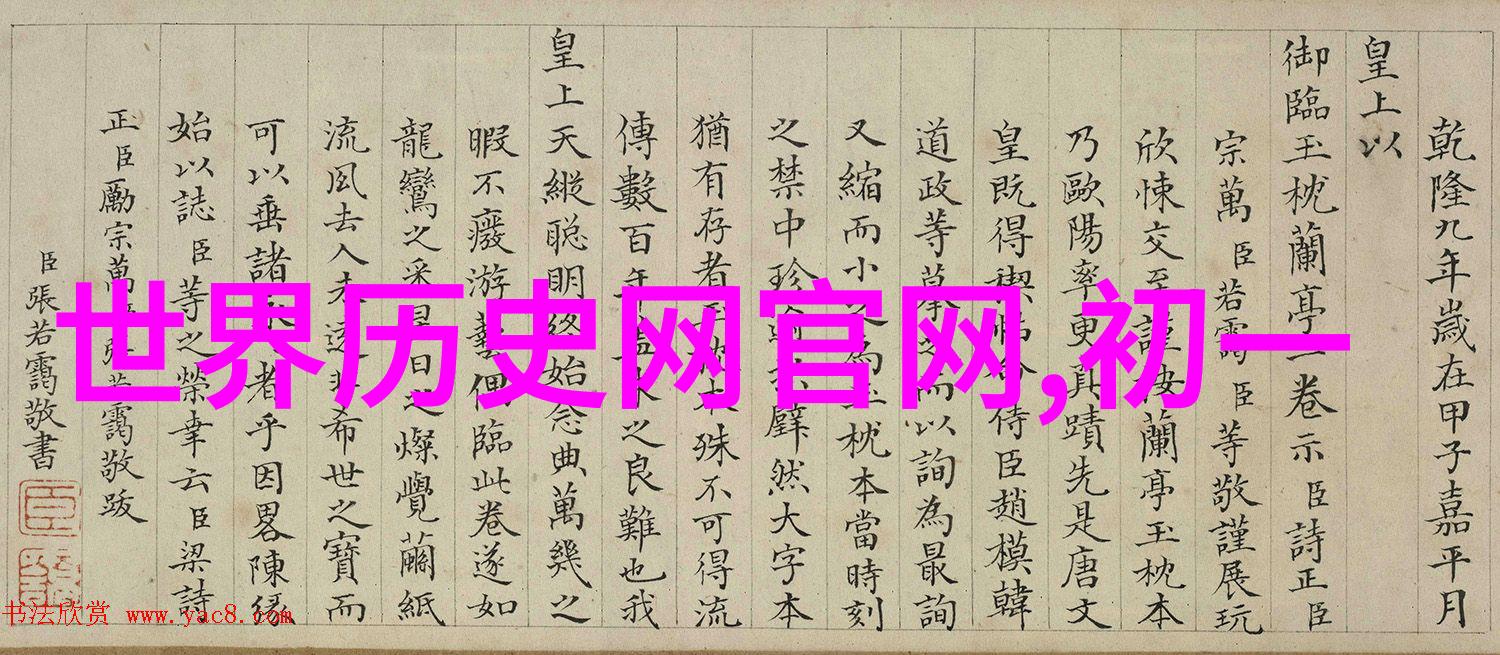 乾隆九年歲在甲子嘉平月
皇上以
御臨玉枕蘭亭一卷示臣詩正臣
宗萬臣若靄臣等敬謹展玩
欣悚交至謹按蘭亭玉枕本
乃歐陽率更真蹟先是唐文
皇既得禊帖命侍臣趙模韓
道政等摹之而以詢為最詢
又縮而小之為玉枕本當時刻
之禁中珍璧然大字本
猶有存者玉枕本殊不可得流
傳數百年蓋本之良難也我
皇上天縱聰明終始念典萬幾之
暇不癈游藝偶臨此卷遂如
龍鸞之采星日之燦覺繭紙
流風去人未遠非希世之寶而
可以垂諸永者乎因畧陳緣
始以誌臣等之榮幸云臣梁詩
正臣勵宗萬臣張若靄敬跋
臣張若靄敬書
世界历史网官网,初一
书法欣赏 www.yac8.com